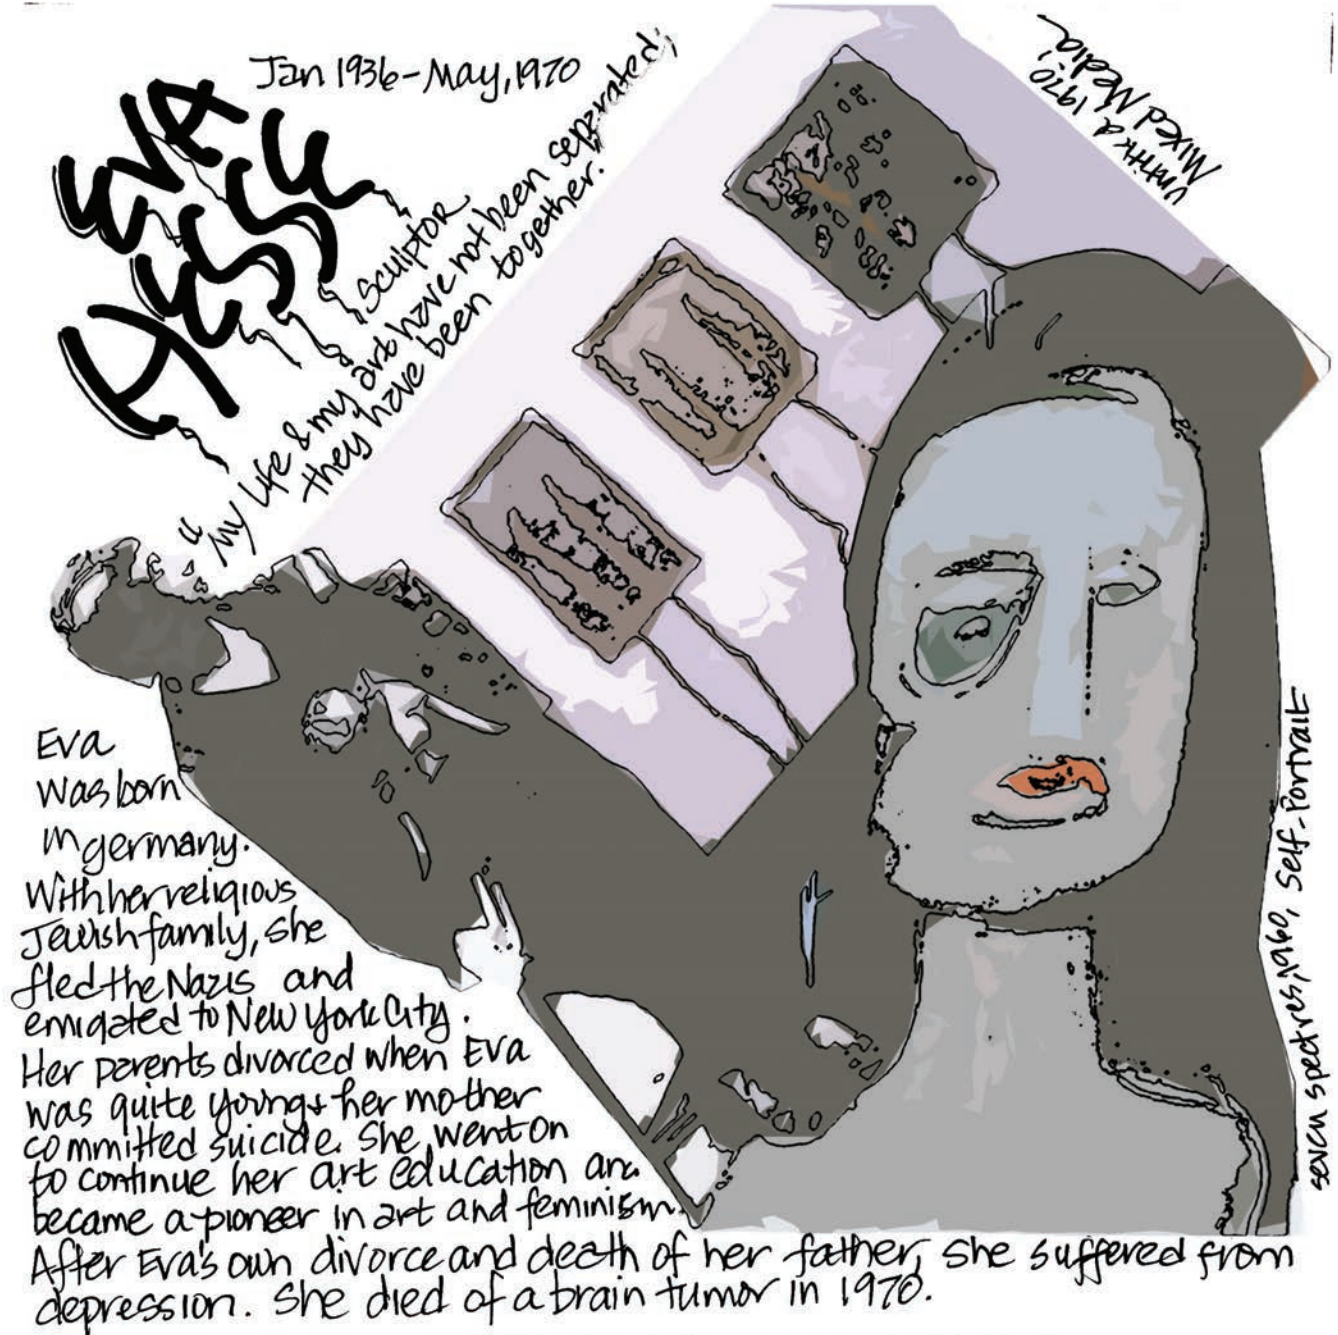 EVA
HESSE
Jan 1936-May, 1970
Sculptor
"My life & my art have not been separated;
they have been together.
Untitled 1970
Mixed Media
Eva
was born
in germany.
With her religious
Jewish family, she
fled the Nazis and
emigated to New York City.
Her parents divorced when Eva
was quite young & her mother
committed suicide. She went on
to continue her art education and
became a pioneer in art and feminism.
After Eva's own divorce and death of her father, she suffered from
depression. She died of a brain tumor in 1970.
seven spectres, 1960, Self-Portrait